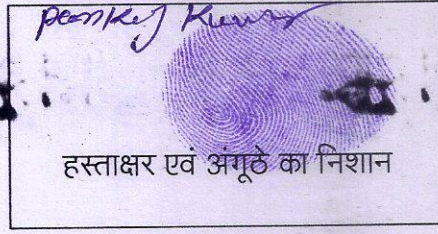 Pankaj Kumar
हस्ताक्षर एवं अंगूठे का निशान